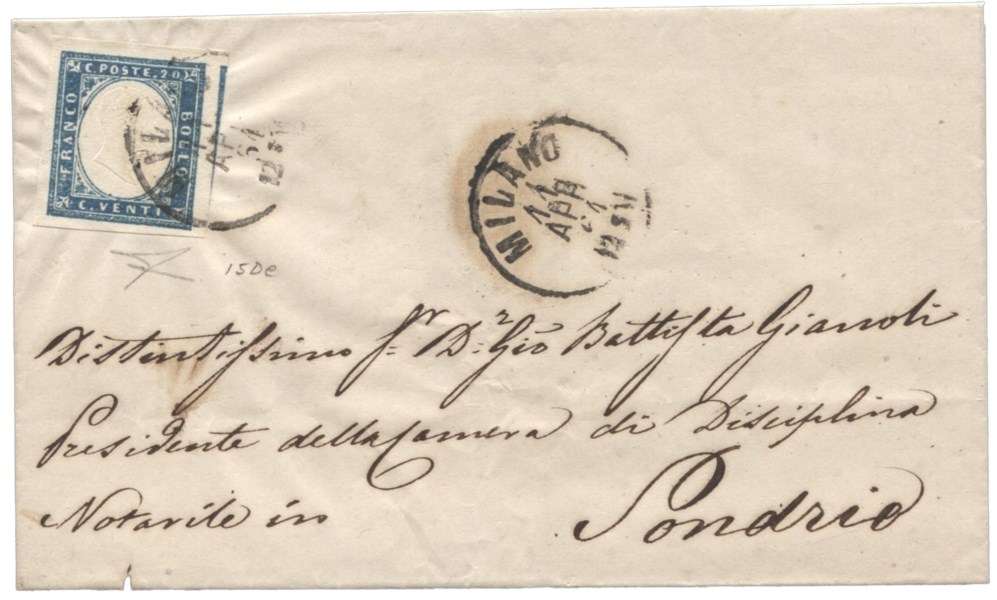 C. POSTE. 20
FRANCO
BOLLO
C. VENTI
MILANO
11
APR
61
12 M
15De
Distintissimo Sr. Dr. Gio Battista Gianoli
Presidente della Camera di Disciplina
Notarile in
Sondrio